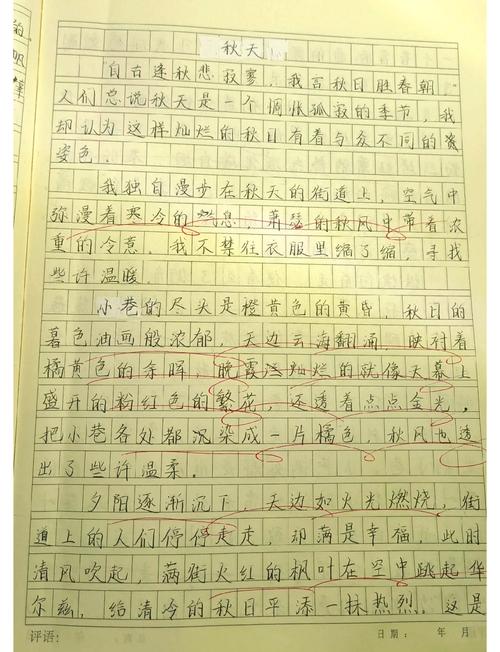 秋天
“自古逢秋悲寂寥,我言秋日胜春朝”
人们总说秋天是一个惆怅孤寂的季节,我
却认为这样灿烂的秋日有着与众不同的资
姿色.
我独自漫步在秋天的街道上,空气中
弥漫着寒冷的气息,萧瑟的秋风中带着浓
重的冷意.我不禁往衣服里缩了缩,寻找
些许温暖.
小巷的尽头是橙黄色的黄昏,秋日的
暮色油画般浓郁,天边云海翻涌,映衬着
橘黄色的余晖,晚霞灿烂的就像天幕上
盛开的粉红色的繁花,还透着点点金光,
把小巷各处都沉染成一片橘色,秋风也透
出了些许温柔.
夕阳逐渐沉下,天边如火光燃烧,街
道上的人们停停走走,却满是幸福,此时
清风吹起,满街火红的枫叶在空中跳起华
尔兹,给清冷的秋日平添一抹热烈.这是
评语: 日期: 年 月